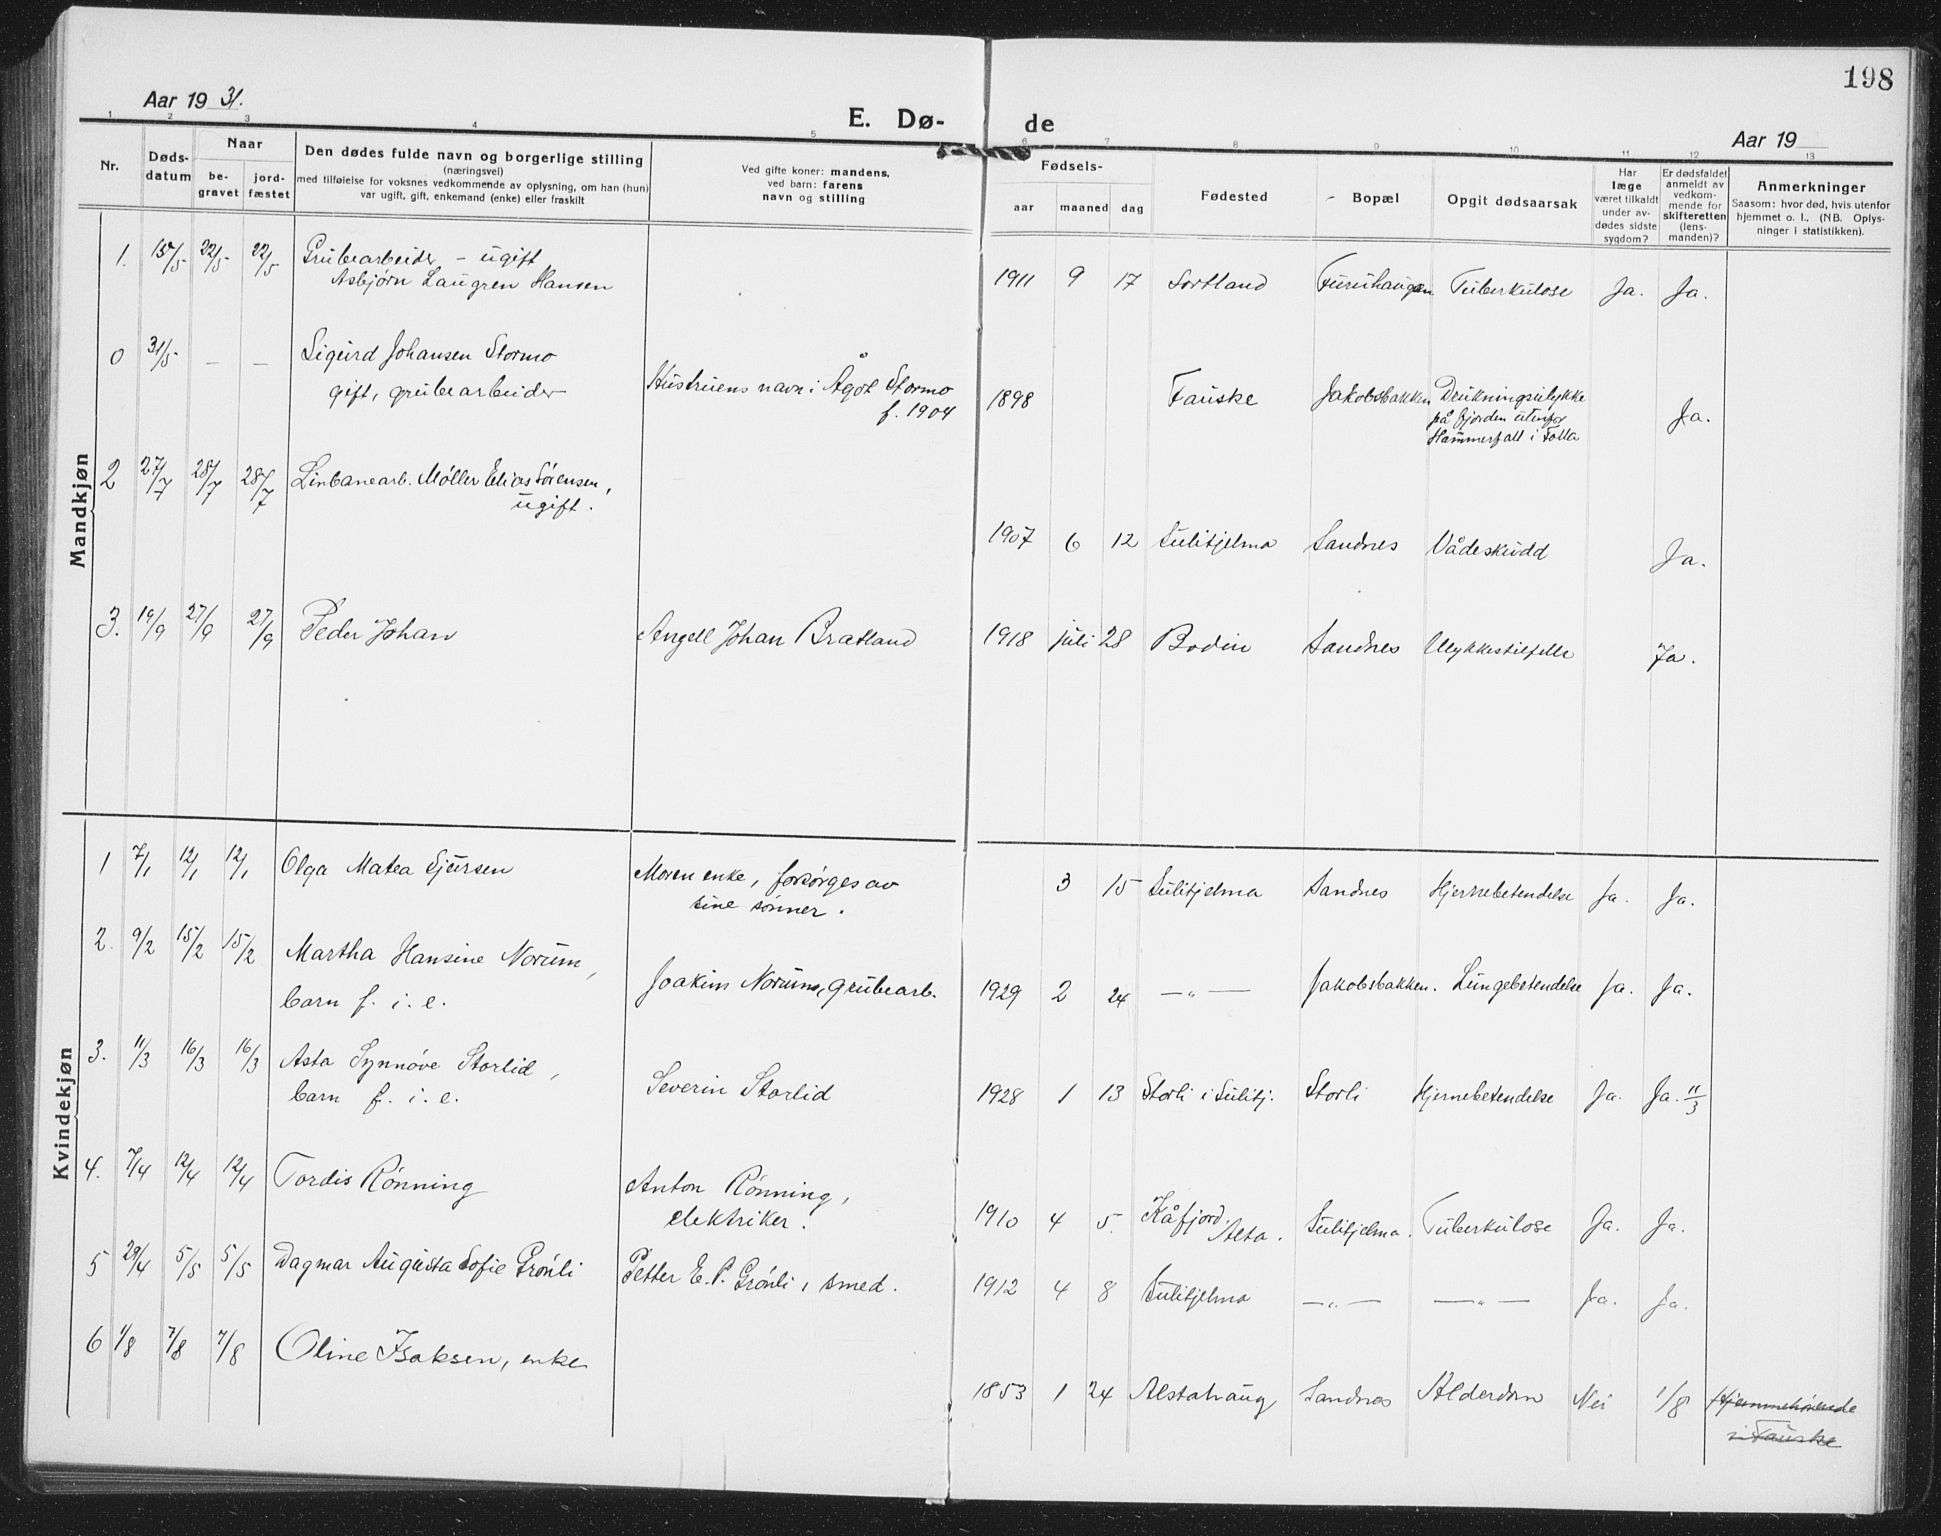 198
Aar 19 31.
E. Dø-
de
Aar 19
1 2 3 4 5 6 7 8 9 10 11 12 13
Nr.
Døds-
datum
Naar
be-
gravet
jord-
fæstet
Den dødes fulde navn og borgerlige stilling
(næringsvei)
med tilføielse for voksnes vedkommende av oplysning, om han (hun)
var ugift, gift, enkemand (enke) eller fraskilt
Ved gifte koner: mandens,
ved barn: farens
navn og stilling
Fødsels-
aar maaned dag
Fødested
Bopæl
Opgit dødsaarsak
Har
læge
været tilkaldt
under av-
dødes sidste
sygdom?
Er dødsfaldet
anmeldt av
vedkom-
mende for
skifteretten
(lens-
manden)?
Anmerkninger
Saasom: hvor død, hvis utenfor
hjemmet o. l., (NB. Oplys-
ninger i statistikken).
Mandkjøn
1. 15/5 22/5 22/5 Grubearbeider - ugift
Asbjørn Laugren Hansen
1911 9 17 Sortland Furuhaugen Tuberkulose Ja. Ja.
0 31/5 - - Sigurd Johansen Stormo
gift, grubearbeider
Hustruens navn: Ågot Stormo
f. 1904
1898 Fauske Jakobsbakken Drukningsulykke
på fjorden utenfor
Hammerfall i Folla
Ja.
2 27/7 28/7 28/7 Linbanearb. Møller Elias Sørensen,
ugift.
1907 6 12 Sulitjelma Sandnes Vådeskudd Ja.
3. 19/9 27/9 27/9 Peder Johan Angell Johan Bratland
1918 juli 28 Bodin Sandnes Ulykkestilfelle Ja.
Kvindekjøn
1 7/1 12/1 12/1 Olga Matea Sjursen Moren enke, forsørges av
sine sønner.
3 15 Sulitjelma Sandnes Hjernebetendelse Ja. Ja.
2. 9/2 15/2 15/2 Martha Hansine Norum,
barn f. i. e.
Joakim Norum, grubearb.
1929 2 24 -„- Jakobsbakken. Lungebetendelse Ja. Ja.
3. 11/3 16/3 16/3 Asta Synnøve Storlid,
barn f. i. e.
Severin Storlid
1928 1 13 Storli i Sulitj. Storli Hjernebetendelse Ja. Ja. 11/3
4. 7/4 12/4 12/4 Tordis Rønning Anton Rønning,
elektriker.
1910 4 5. Kåfjord.
Alta. Sulitjelma. Tuberkulose Ja. Ja.
5 29/4 5/5 5/5 Dagmar Augusta Sofie Grønli Petter E. P. Grønli, smed.
1912 4 8 Sulitjelma -„- -„- Ja. Ja.
6 1/8 7/8 7/8 Oline Isaksen, enke
1853 1 24 Alstahaug Sandnes Alderdom Nei 1/8 Hjemmehørende
i Fauske